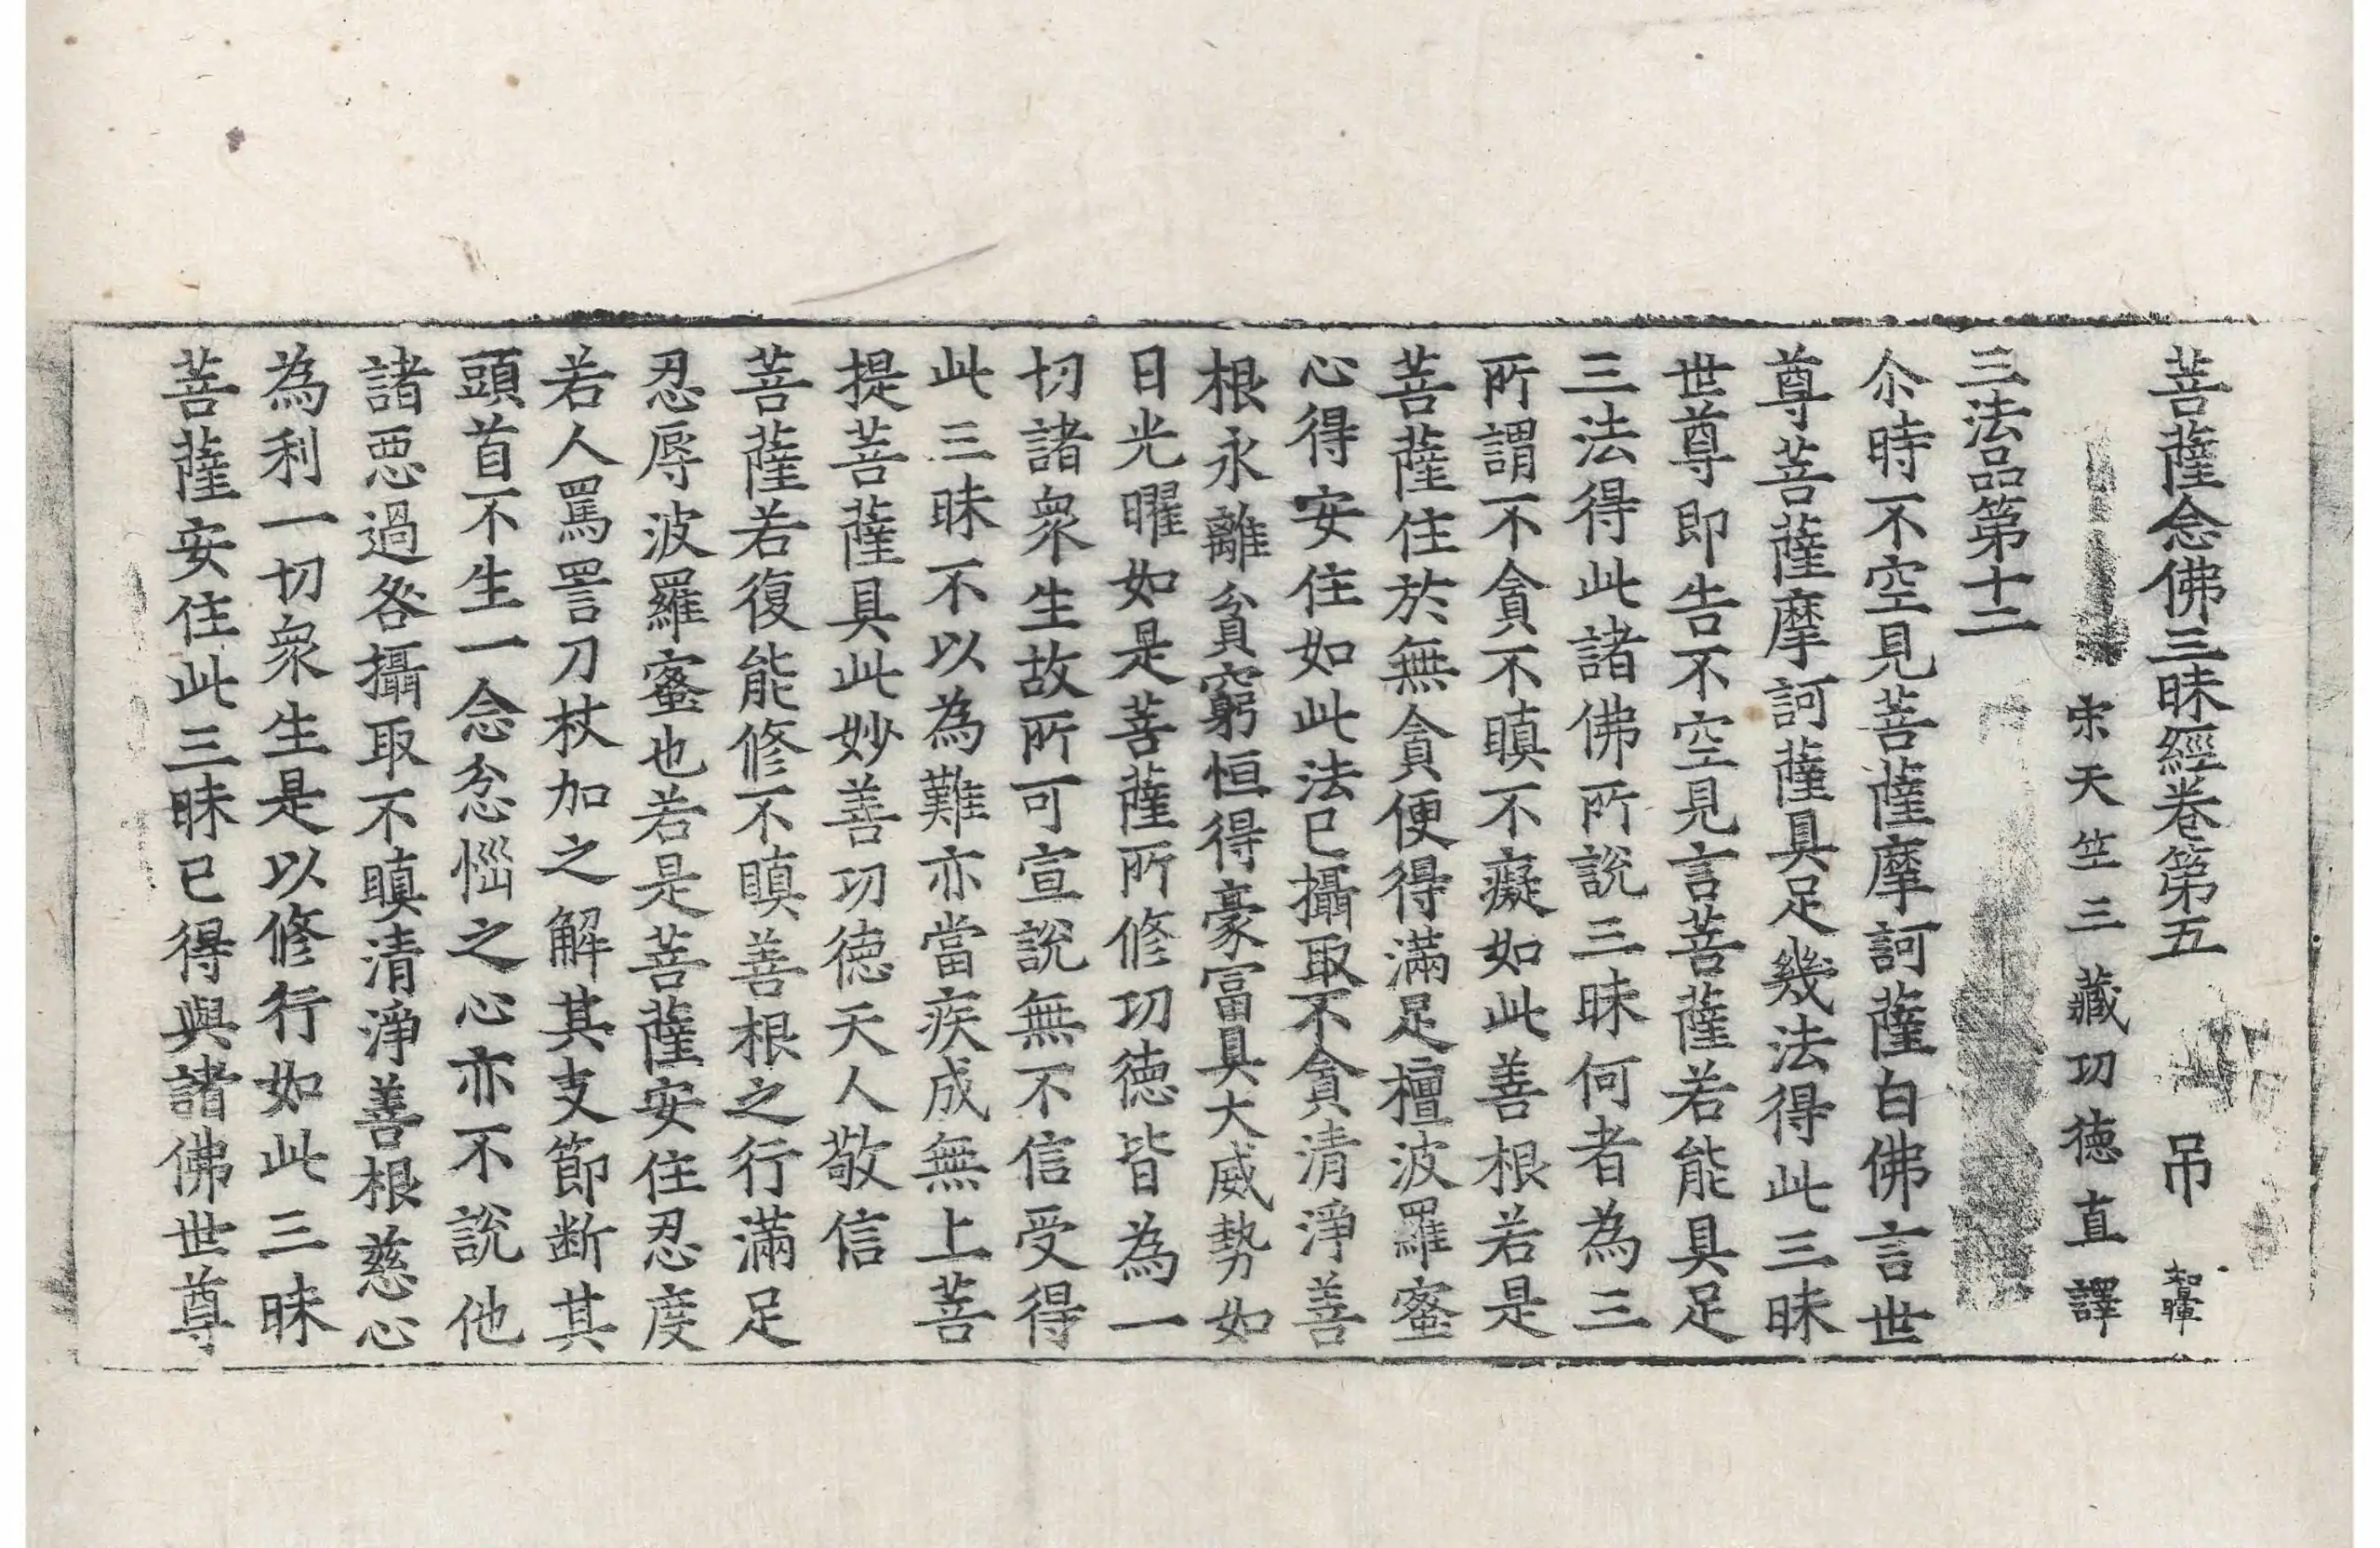 菩薩念佛三昧經卷第五 吊 智暉
宋天竺三藏功德直譯
三法品第十二
尒時不空見菩薩摩訶薩白佛言世
尊菩薩摩訶薩具足幾法得此三昧
世尊即告不空見言菩薩若能具足
三法得此諸佛所說三昧何者為三
所謂不貪不瞋不癡如此善根若是
菩薩住於無貪便得滿足檀波羅蜜
心得安住如此法已攝取不貪清淨善
根永離貧窮恒得豪富具大威勢如
日光曜如是菩薩所修功德皆為一
切諸衆生故所可宣說無不信受得
此三昧不以為難亦當疾成無上菩
提菩薩具此妙善功德天人敬信
菩薩若復能修不瞋善根之行滿足
忍辱波羅蜜也若是菩薩安住忍度
若人罵詈刀杖加之解其支節斷其
頭首不生一念忿惱之心亦不說他
諸惡過咎攝取不瞋清淨善根慈心
為利一切衆生是以修行如此三昧
菩薩安住此三昧已得與諸佛世尊